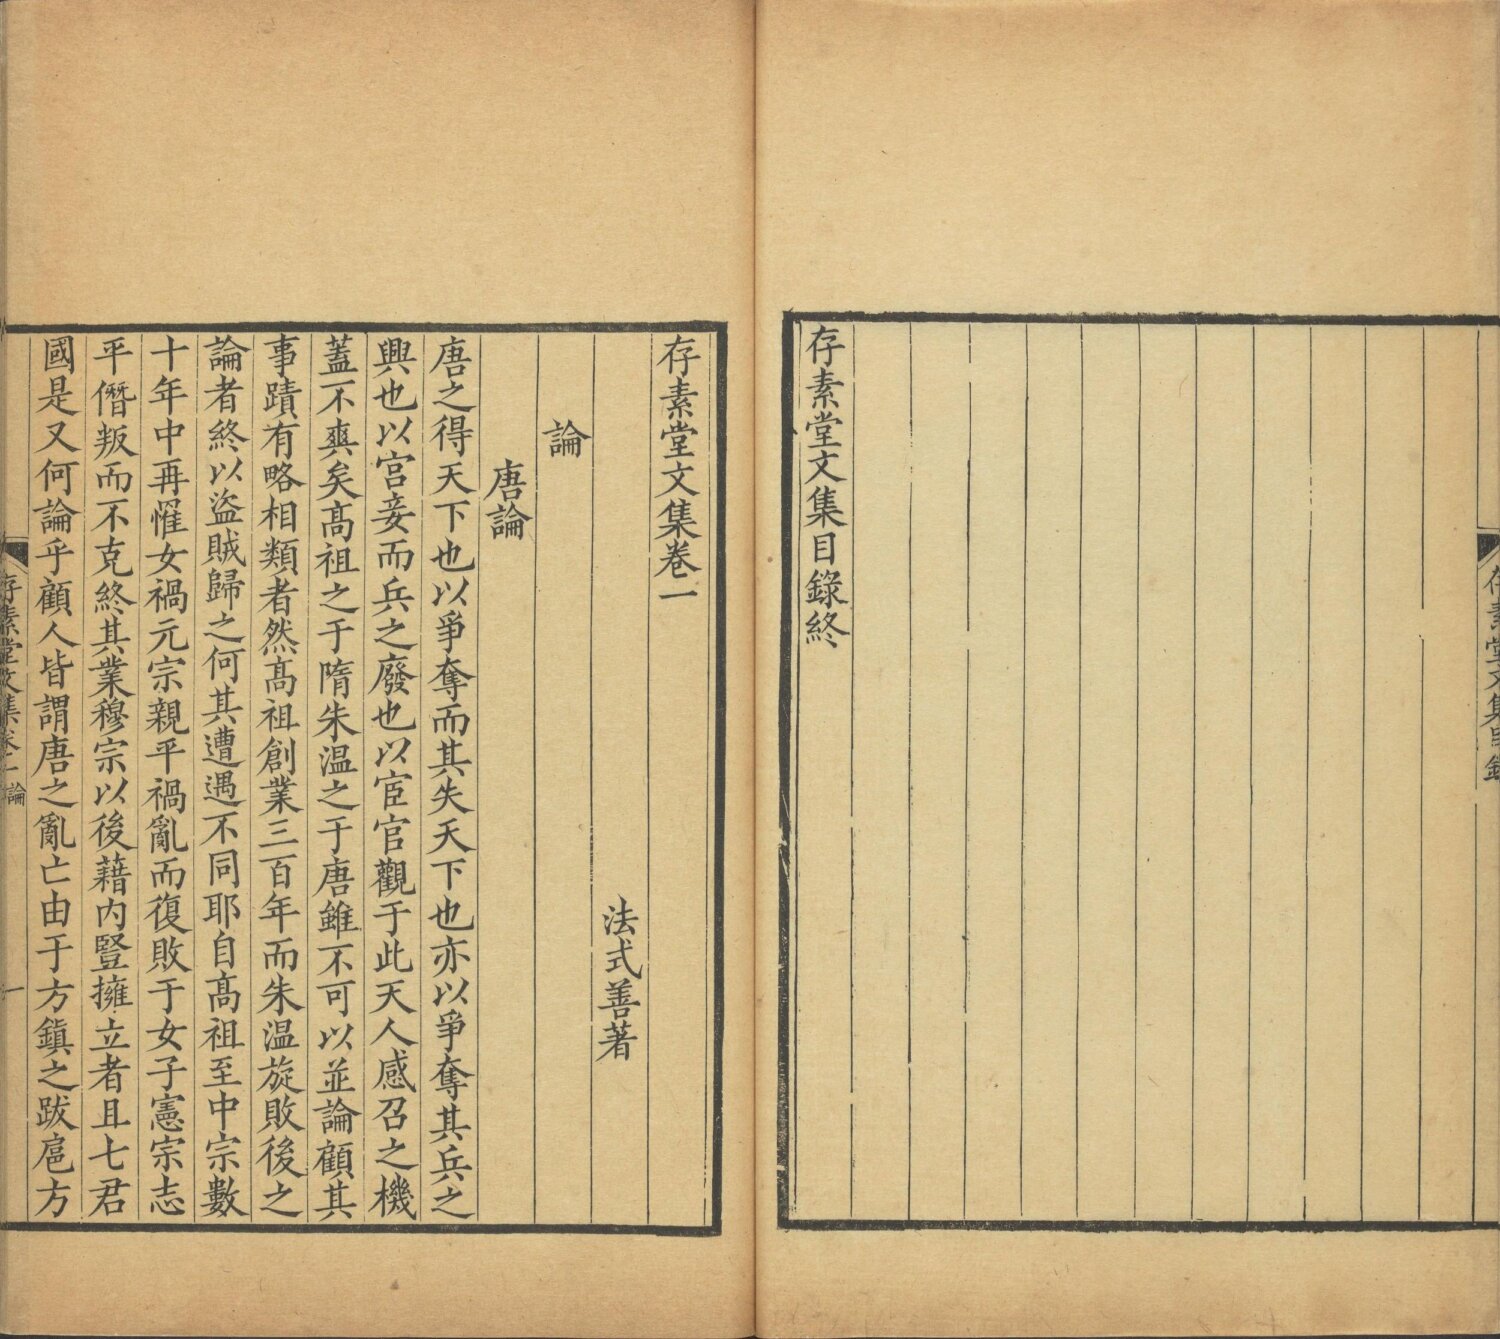 存素堂文集目錄
存素堂文集目錄終
存素堂文集卷一
法式善著
論
唐論
唐之得天下也以爭奪而其失天下也亦以爭奪其兵之
興也以宮妾而兵之廢也以宦官觀于此天人感召之機
蓋不爽矣高祖之于隋朱溫之于唐雖不可以並論顧其
事蹟有略相類者然高祖創業三百年而朱溫旋敗後之
論者終以盜賊歸之何其遭遇不同耶自高祖至中宗數
十年中再罹女禍元宗親平禍亂而復敗于女子憲宗志
平僭叛而不克終其業穆宗以後藉內豎擁立者且七君
國是又何論乎顧人皆謂唐之亂亡由于方鎮之跋扈方
存素堂文集卷一 論 一